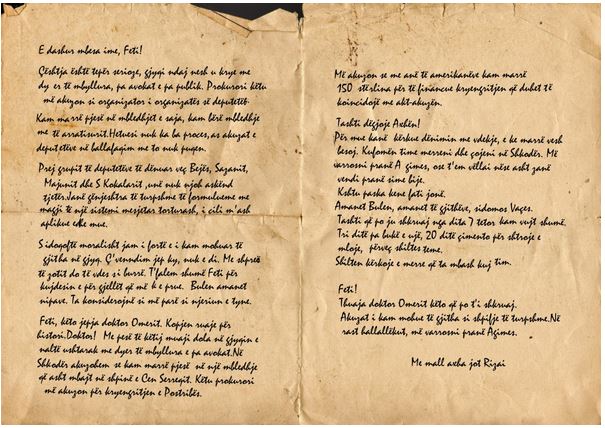 E dashur mbesa ime, Feti!
Çështja është tepër serioze, gjyqi ndaj nesh u krye me
dy er të mbyllura, pa avokat e pa publik. Prokurori këtu
më akuzon si organizator i organizatës së deputetëb.
Kam marrë pjesë në mbledhjet e saja, kam bërë mbledhje
me të arratisurit. Hetuesi nuk ka ba proces, as akuzat e
deputetëve në ballafaqim me to nuk puqen.
Prej grupit të deputetëve të dënuar veç Bejës, Sazanit,
Majunit dhe S Kokalarit ,unë nuk njoh askënd
tjetër. Janë gënjeshtra të turpshme të formulueme me
magji të një sistemi mesjetar torturash, i cili m'ash
aplikue edhe mue.
Sidoqoftë moralisht jam i fortë e i kam mohuar të
gjitha në gjyq. Ç'vendim jep ky, nuk e di. Me shpresë
të zotit do të vdes si burrë. T'falem shumë Feti për
kujdesin e për gjellët që më k e prue. Bulen amanet
nipave. Ta konsiderojnë si më parë si njeriun e tyne.
Feti, këto jepja doktor Omerit. Kopjen ruaje për
histori. Doktor! Me pesë të këtij muaji dola në gjyqin e
naltë ushtarak me dyer të mbyllura e pa avokat. Në
Shkodër akuzohem se kam marrë pjesë në një mbledhje
që asht mbajt në shpinë e Cen Serreqit. Këtu prokurori
më akuzon për kryengritjen e Postribës.
Më akuzon se me anë të amerikanëve kam marrë
150 stërlina për të financue kryengritjen që duhet të
koincidojë me akt-akuzën.
Tashti dëgjoje Axhën!
Për mue kanë kërkue dënimin me vdekje, e ke marrë vesh
besoj. Kufomën time merreni dhe çojeni në Shkodër. Më
varrosni pranë A gimes, ose t'em vëllai nëse asht zanë
vendi pranë sime bije.
Kshtu paska kene fati jonë.
Amanet Bulen, amanet të gjithëve, sidomos Vaçes.
Tashti që po ju shkruaj nga dita 7 tetor kam vujt shumë.
Tri ditë pa bukë e ujë, 20 ditë çimento për shtroje e
mloje, përveç shiltes teme.
Shilten kërkoje e merre që ta mbash kuj tim.
Feti!
Thuaja doktor Omerit këto që po t'i shkruaj.
Akuzat i kam mohue të gjitha si shpifje të turpshme. Në
rast hallallëkut, më varrosni pranë Agimes.
Me mall axha jot Rizai